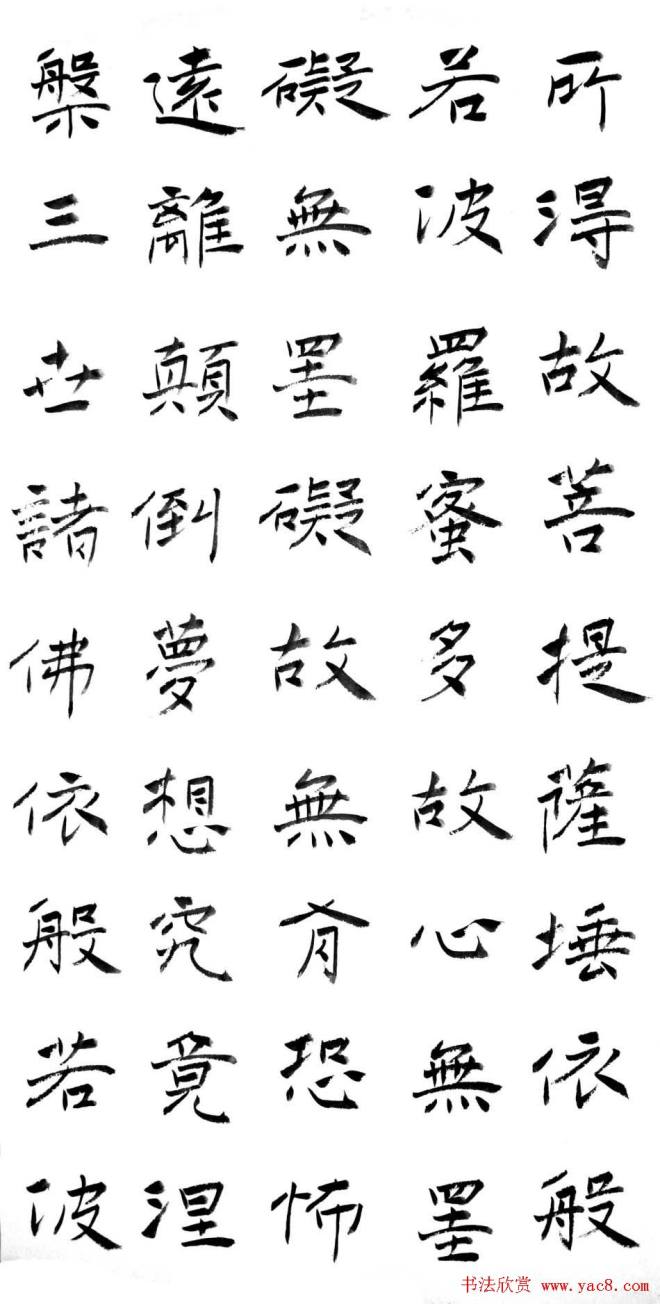 所得故菩提薩埵依般
若波羅蜜多故心無罣
礙無罣礙故無有恐怖
遠離顛倒夢想究竟涅
槃三世諸佛依般若波
书法欣赏 www.yac8.com